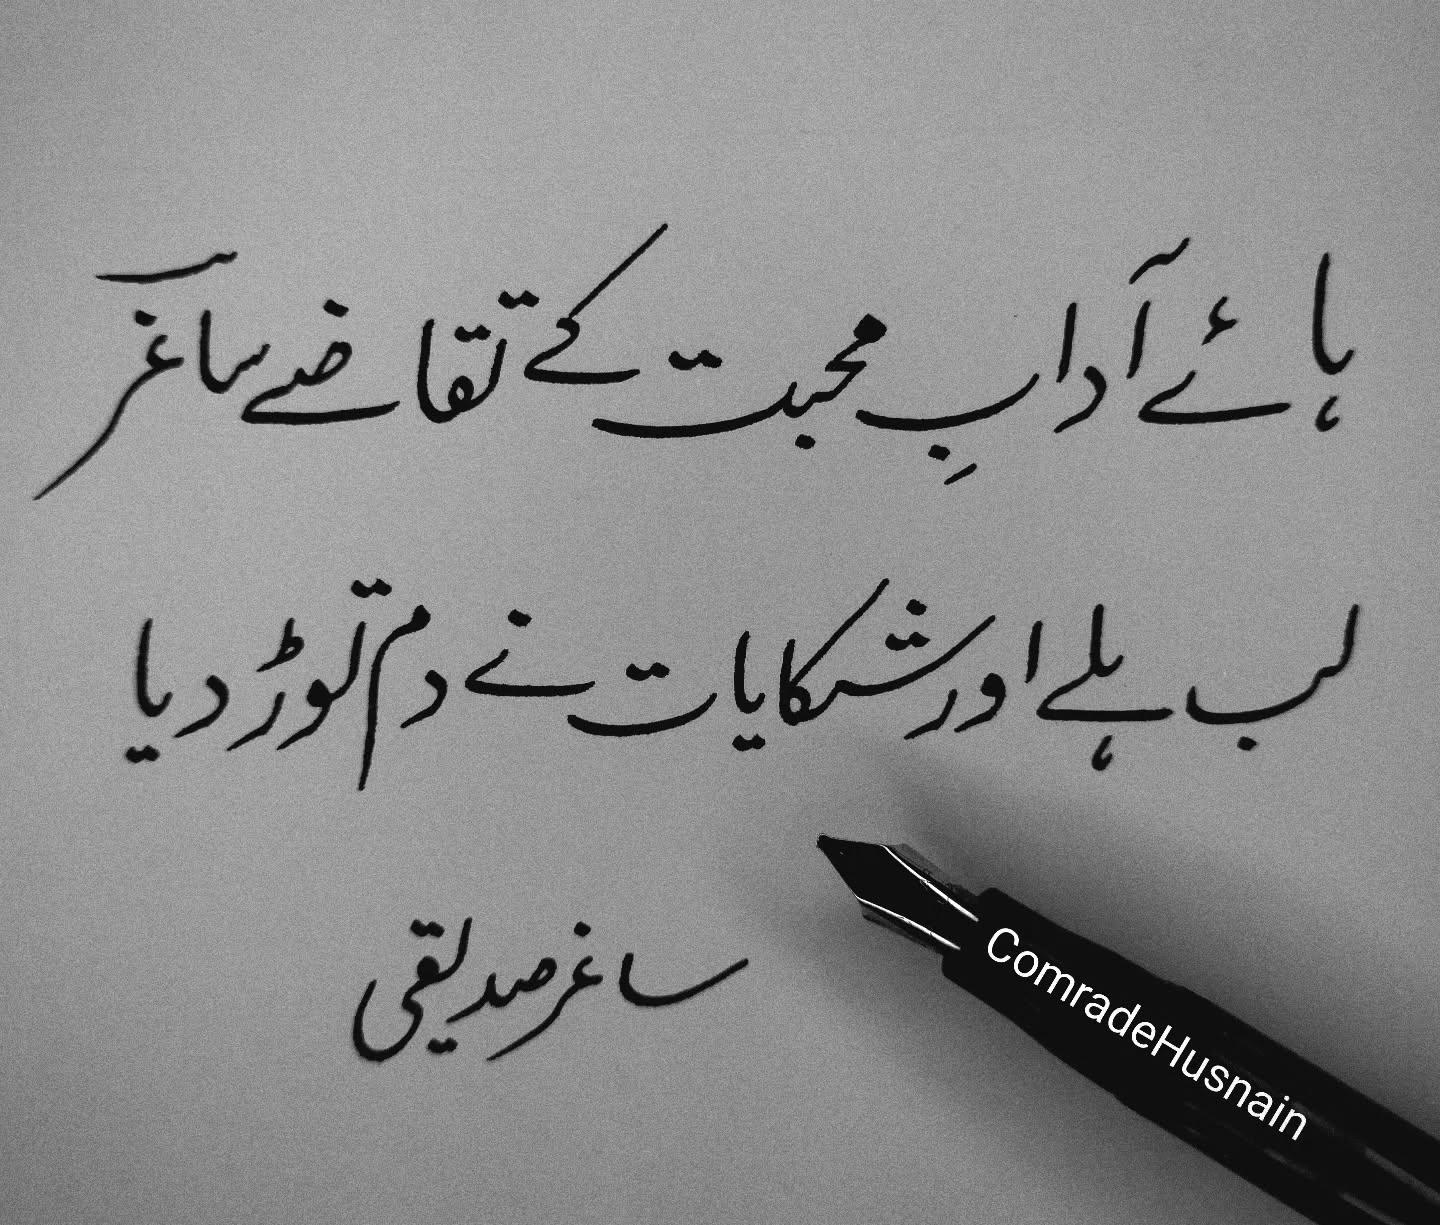 ہائے آدابِ محبت کے تقاضے ساغرؔ
لب ہلے اور شکایات نے دم توڑ دیا
ساغر صدیقی
ComradeHusnain